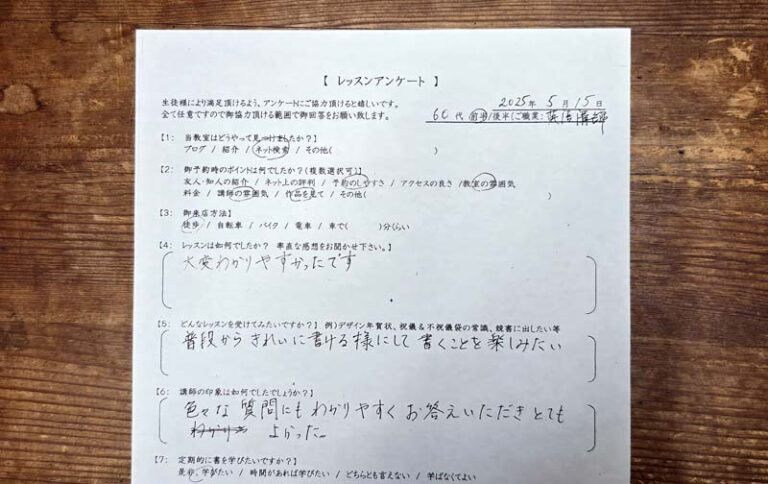 【 レッスンアンケート 】
生徒様により満足頂けるよう、アンケートにご協力頂けると嬉しいです。
2025年 5月 15日
全て任意ですので御協力頂ける範囲で御回答をお願い致します。
60代 前半/後半(ご職業:
【1: 当教室はどうやって見つけましたか?】
ブログ / 紹介 / ネット検索 / その他( )
【2: 御予約時のポイントは何でしたか?(複数選択可)】
友人・知人の紹介 / ネット上の評判 / 予約のしやすさ / アクセスの良さ /教室の雰囲気
料金 / 講師の雰囲気 / 作品を見て / その他( )
【3: 御来店方法】
徒歩 / 自転車 / バイク / 電車 / 車で( )分くらい
【4: レッスンは如何でしたか? 率直な感想をお聞かせ下さい。】
大変わかりやすかったです
【5: どんなレッスンを受けてみたいですか?】 例)デザイン年賀状、祝儀&不祝儀袋の常識、競書に出したい等
普段からきれいに書ける様にして書くことを楽しみたい
【6: 講師の印象は如何でしたでしょうか?】
色々な質問にもわかりやすくお答えいただきとても
よかった
【7: 定期的に書を学びたいですか?】
是非、学びたい / 時間があれば学びたい / どちらとも言えない / 学ばなくてよい